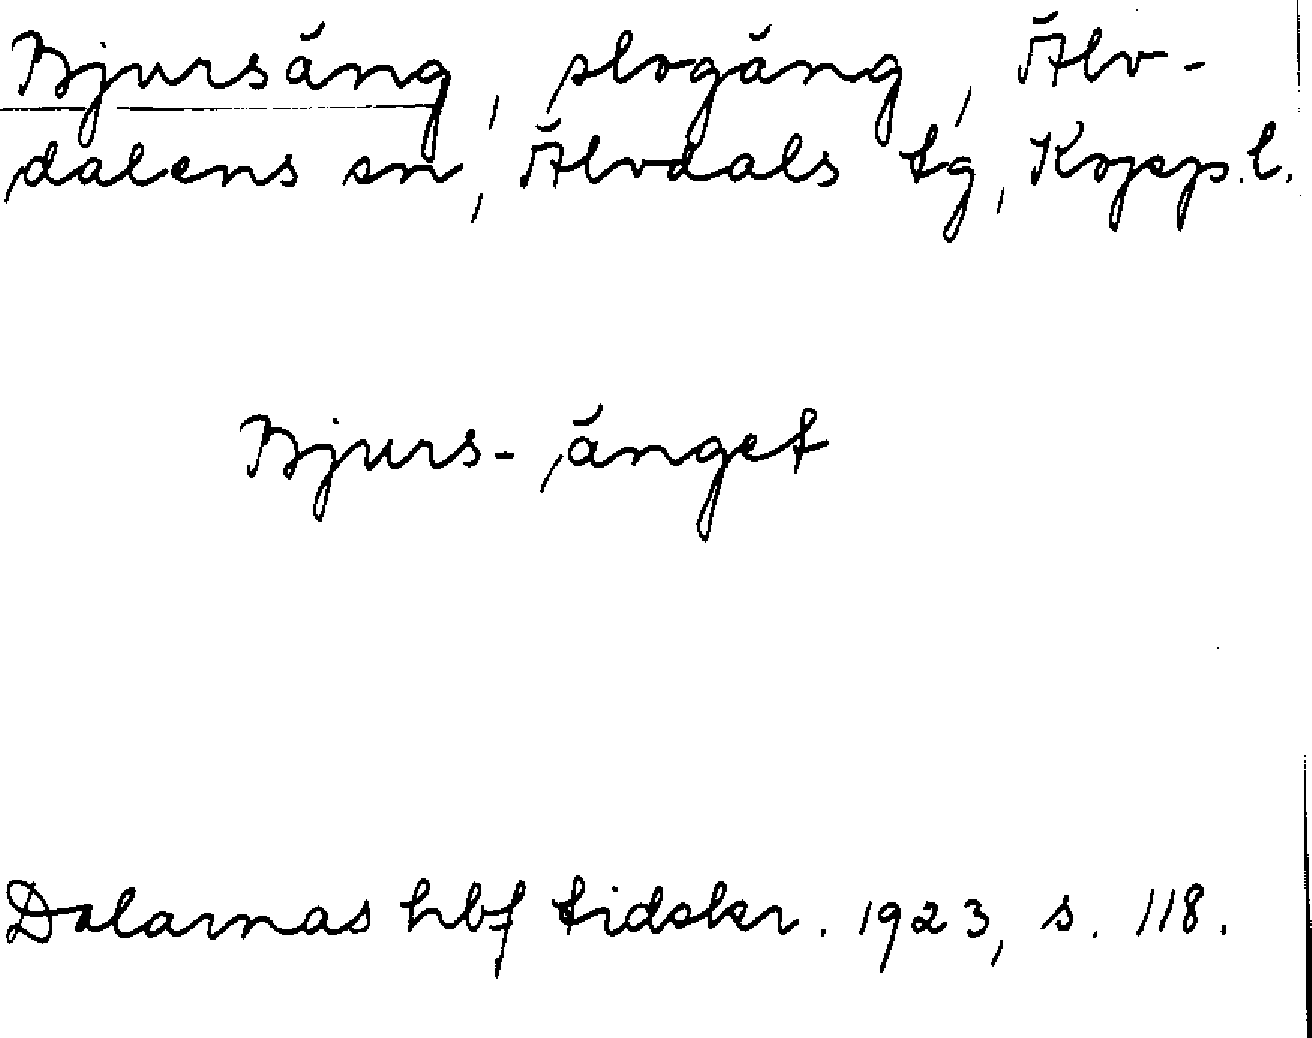 Bjursäng, slogäng, Älv-
dalens sn, Älvdals tg, Kopp.l.
Bjurs-änget
Dalarnas hbf tidskr. 1923, s. 118.